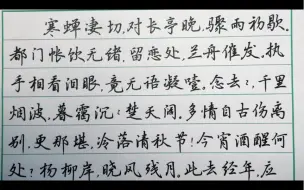 寒蝉凄切,对长亭晚,骤雨初歇.
都门帐饮无绪,留恋处,兰舟催发.执
手相看泪眼,竟无语凝噎.念去:,千里
烟波,暮霭沉:楚天阔.多情自古伤离
别,更那堪,冷落清秋节!今宵酒醒何
处?杨柳岸,晓风残月.此去经年,应